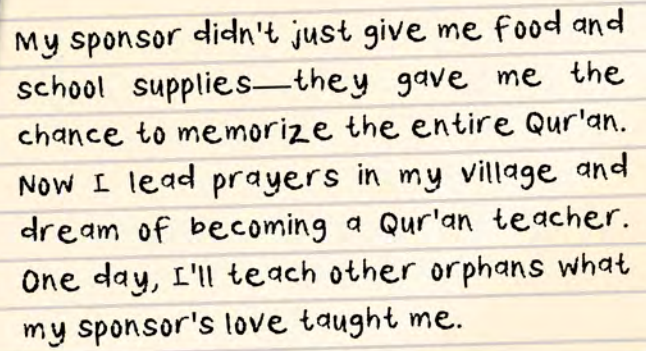 My sponsor didn't just give me food and
school supplies—they gave me the
chance to memorize the entire Qur'an.
Now I lead prayers in my village and
dream of becoming a Qur'an teacher.
One day, I'll teach other orphans what
my sponsor's love taught me.